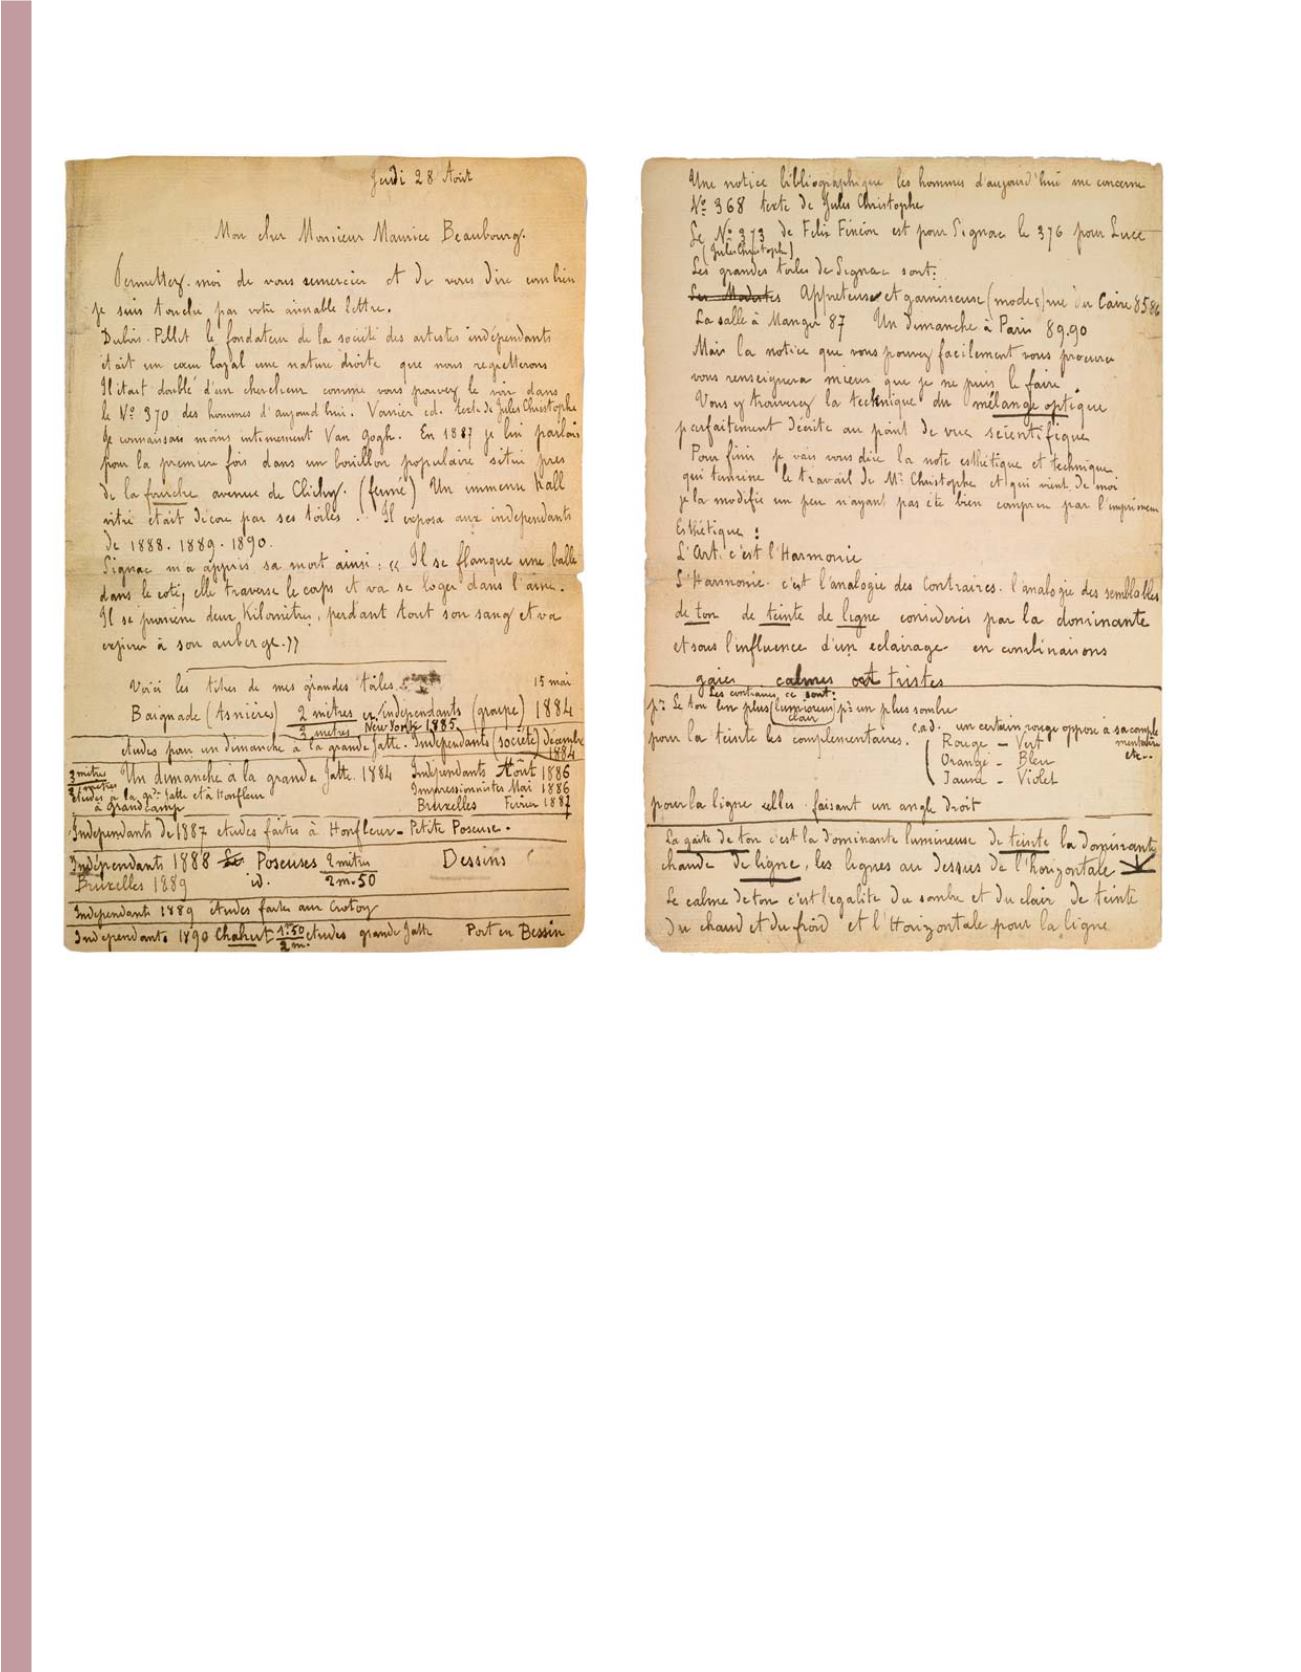 Jeudi 28 Août
Mon cher Monsieur Maurice Beaubourg.
Permettez-moi de vous remercier et de vous dire combien
je suis touché par votre aimable lettre.
Dubois-Pillet le fondateur de la société des artistes indépendants
était un cœur loyal une nature droite que nous regretterons
Il était doublé d'un chercheur comme vous pouvez le voir dans
le Nº 370 des hommes d'aujourd'hui. Vanier ed. texte de Jules Christophe
Je connaissais moins intimement Van Gogh. En 1887 je lui parlais
pour la première fois dans un bouillon populaire situé près
de la fourche avenue de Clichy. (fermé) Un immense hall
vitré était décoré par ses toiles. Il exposa aux indépendants
de 1888. 1889. 1890.
Signac m'a appris sa mort ainsi : « Il se flanque une balle
dans le coté, elle traverse le corps et va se loger dans l'aine.
Il se promène deux Kilomètres, perdant tout son sang et va
expirer à son auberge. »
Voici les titres de mes grandes toiles. 15 mai
Baignade (Asnières) 2 mètres / 3 mètres indépendants (groupe) 1884
New York 1885
études pour un dimanche à la grande Jatte. Indépendants (société) décembre
1884
3 mètres Un dimanche à la grande Jatte. 1884 Indépendants Août 1886
2 mètres Impressionnistes Mai 1886
Etudes à la gde Jatte et à Honfleur
à Grandcamp Bruxelles Février 1887
Indépendants de 1887 etudes faites à Honfleur - Petite Poseuse.
Indépendants 1888 Poseuses 2 mètres / 2m.50 Dessins
Bruxelles 1889 id.
Indépendants 1889 études faites au Crotoy
Indépendants 1890 Chahut 1m.50 / 2m. etudes grande Jatte Port en Bessin
Une notice bibliographique les hommes d'aujourd'hui me concerne
Nº 368 texte de Jules Christophe
Le Nº 373 de Felix Fénéon est pour Signac le 376 pour Luce
(Jules Christoph)
Les grandes toiles de Signac sont :
Les Modistes Appreteuse et garnisseuse (modes) rue du Caire 85 86
La salle à Manger 87 Un dimanche à Paris 89.90
Mais la notice que vous pouvez facilement vous procurer
vous renseignera mieux que je ne puis le faire.
Vous y trouverez la technique du mélange optique
parfaitement décrite au point de vue scientifique
Pour finir je vais vous dire la note esthétique et technique
qui termine le travail de Mr Christophe et qui vient de moi
je la modifie un peu n'ayant pas été bien compris par l'imprimeur
Esthétique :
L'Art c'est l'Harmonie
L'Harmonie c'est l'analogie des Contraires. l'analogie des semblables
de ton de teinte de ligne considérés par la dominante
et sous l'influence d'un eclairage en combinaisons
gaies calmes ou tristes
Les contraires ce sont :
pr le ton un plus (lumineux / clair) pr un plus sombre
c.a.d. un certain rouge opposé à sa complé
pour la teinte les complémentaires. mentaire
Rouge - Vert etc..
Orangé - Bleu
Jaune - Violet
pour la ligne celles faisant un angle droit
La gaité de ton c'est la dominante lumineuse de teinte la dominante
chaude de ligne, les lignes au dessus de l'horizontale
Le calme de ton c'est l'égalité du sombre et du clair de teinte
du chaud et du froid et l'Horizontale pour la ligne